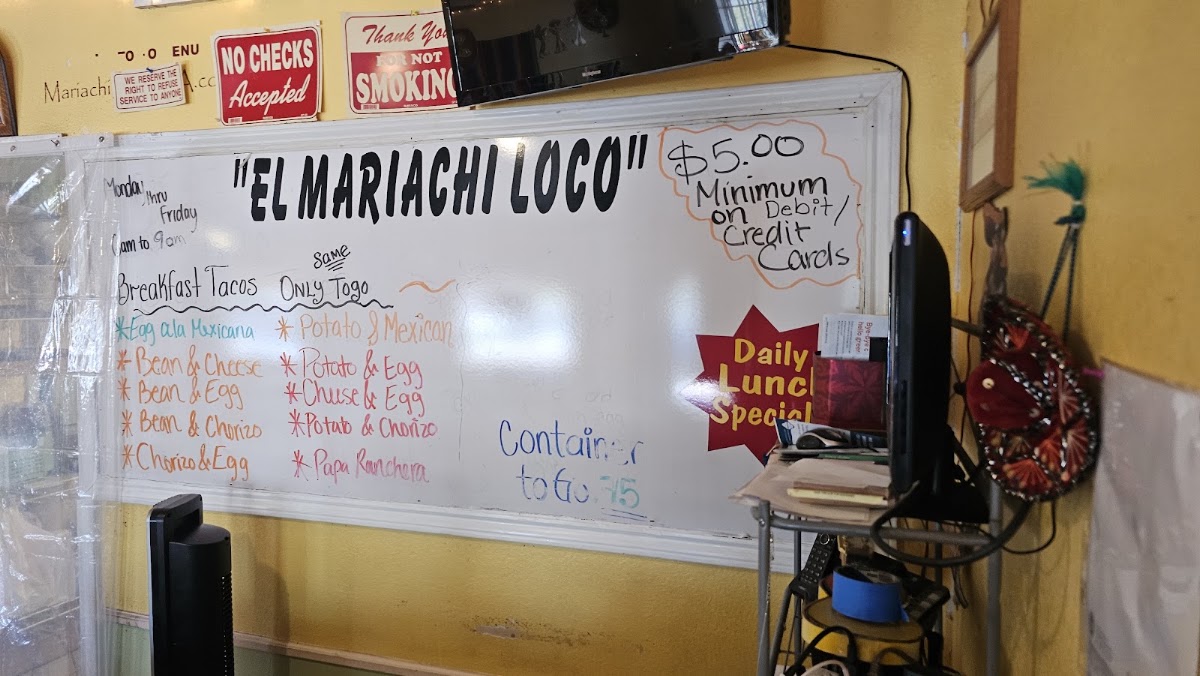 ENU
Mariachi
WE RESERVE THE
RIGHT TO REFUSE
SERVICE TO ANYONE
NO CHECKS
Accepted
Thank You
FOR NOT
SMOKING
"EL MARIACHI LOCO"
Monday
thru
Friday
to 9am
Breakfast Tacos
same
Only Togo
*Egg ala Mexicana
* Bean & Cheese
* Bean & Egg
* Bean & Chorizo
* Chorizo & Egg
* Potato & Mexican
* Potato & Egg
* Chuse & Egg
* Potato & Chorizo
* Papa Ranchera
$5.00
Minimum
on Debit/
Credit
Cards
Daily
Lunch
Special
Container
to Go .75